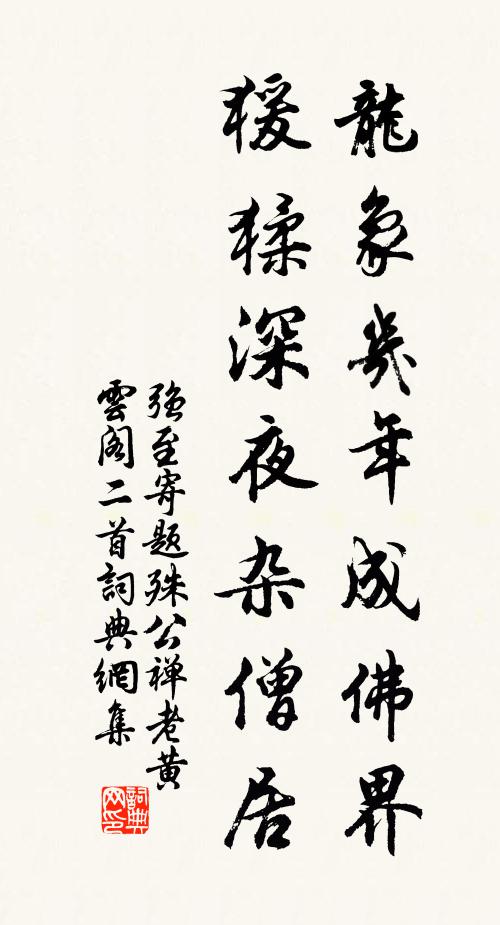 龍象幾年成佛界
猨猱深夜杂僧居
強至寄題殊公禅老黄
雲阁二首詞典網集
詞典网印